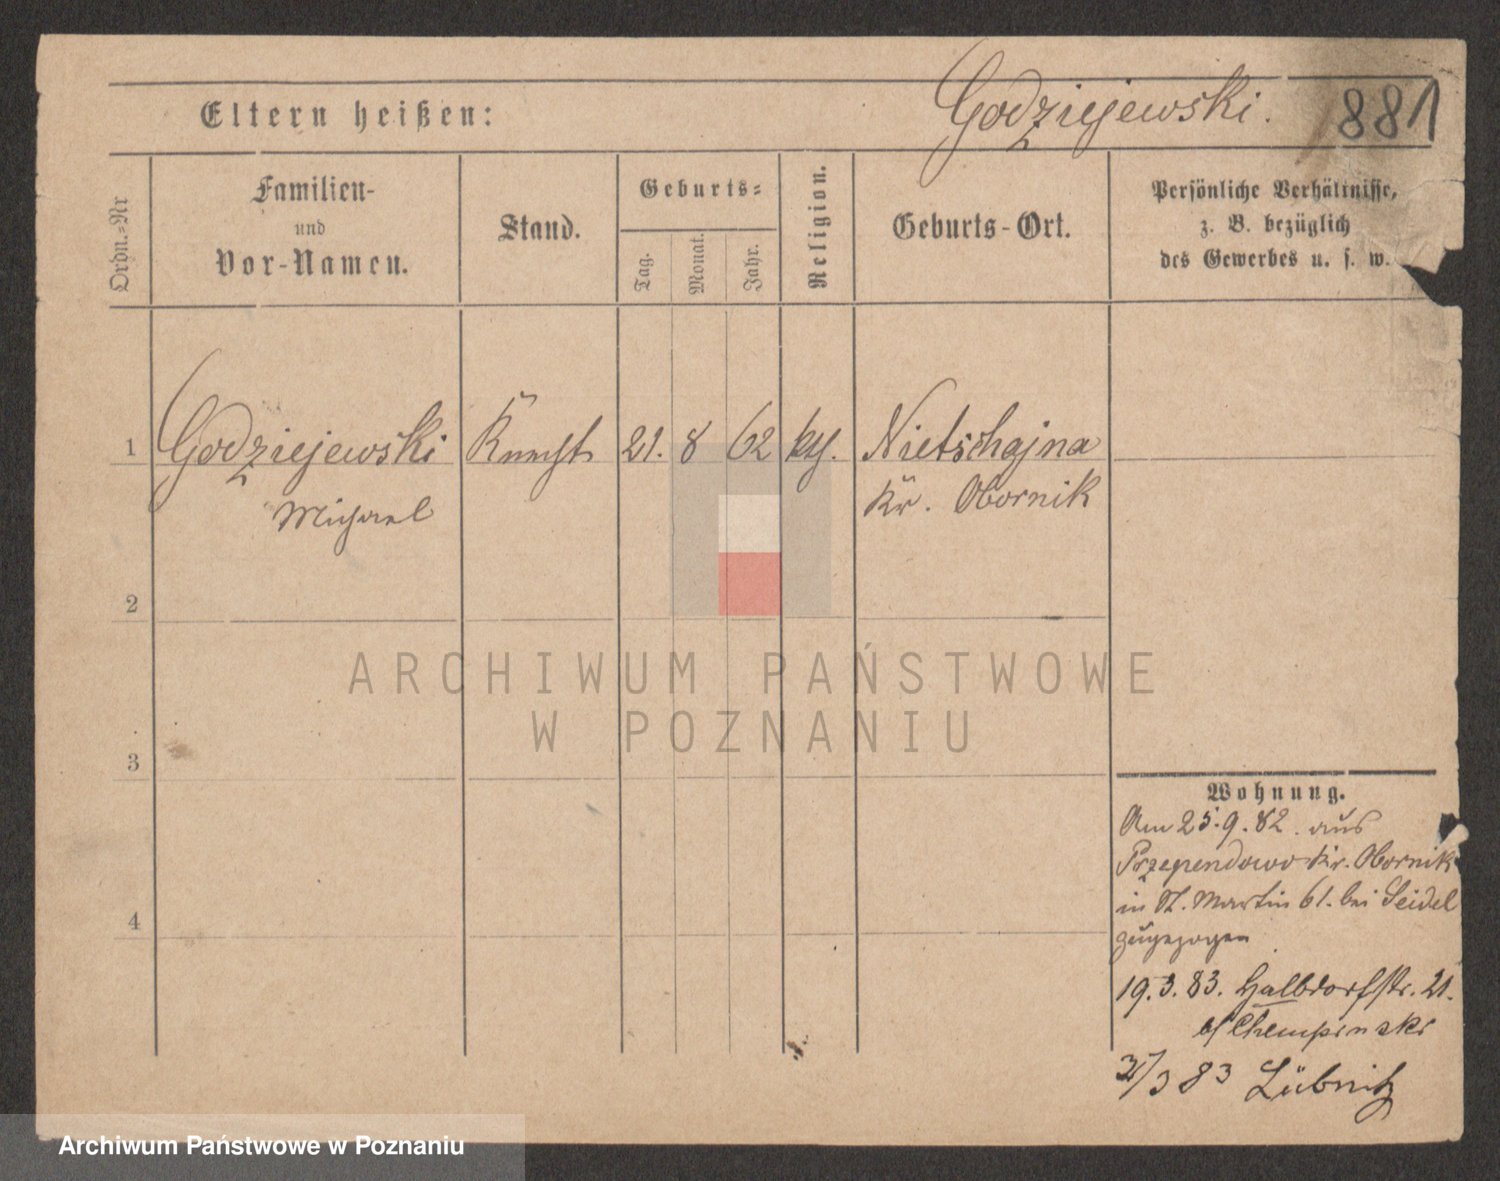 Eltern heißen:
Godziejewski.
881
Ordn.-Nr
Familien-
und
Vor-Namen.
Stand.
Geburts-
Tag.
Monat.
Jahr.
Religion.
Geburts-Ort.
Persönliche Verhältnisse,
z. B. bezüglich
des Gewerbes u. s. w.
1
Godziejewski
Michael
Knecht
21.
8
62
kth.
Nietschajna
Kr. Obornik
2
3
4
ARCHIWUM PAŃSTWOWE
W POZNANIU
Wohnung.
Am 25.9.82. aus
Przependowo Kr. Obornik
in St. Martin 61. bei Seidel
zugezogen
19.3.83. Halbdorfstr. 21.
b/ Chempinski
/3 83 Lübnitz
Archiwum Państwowe w Poznaniu